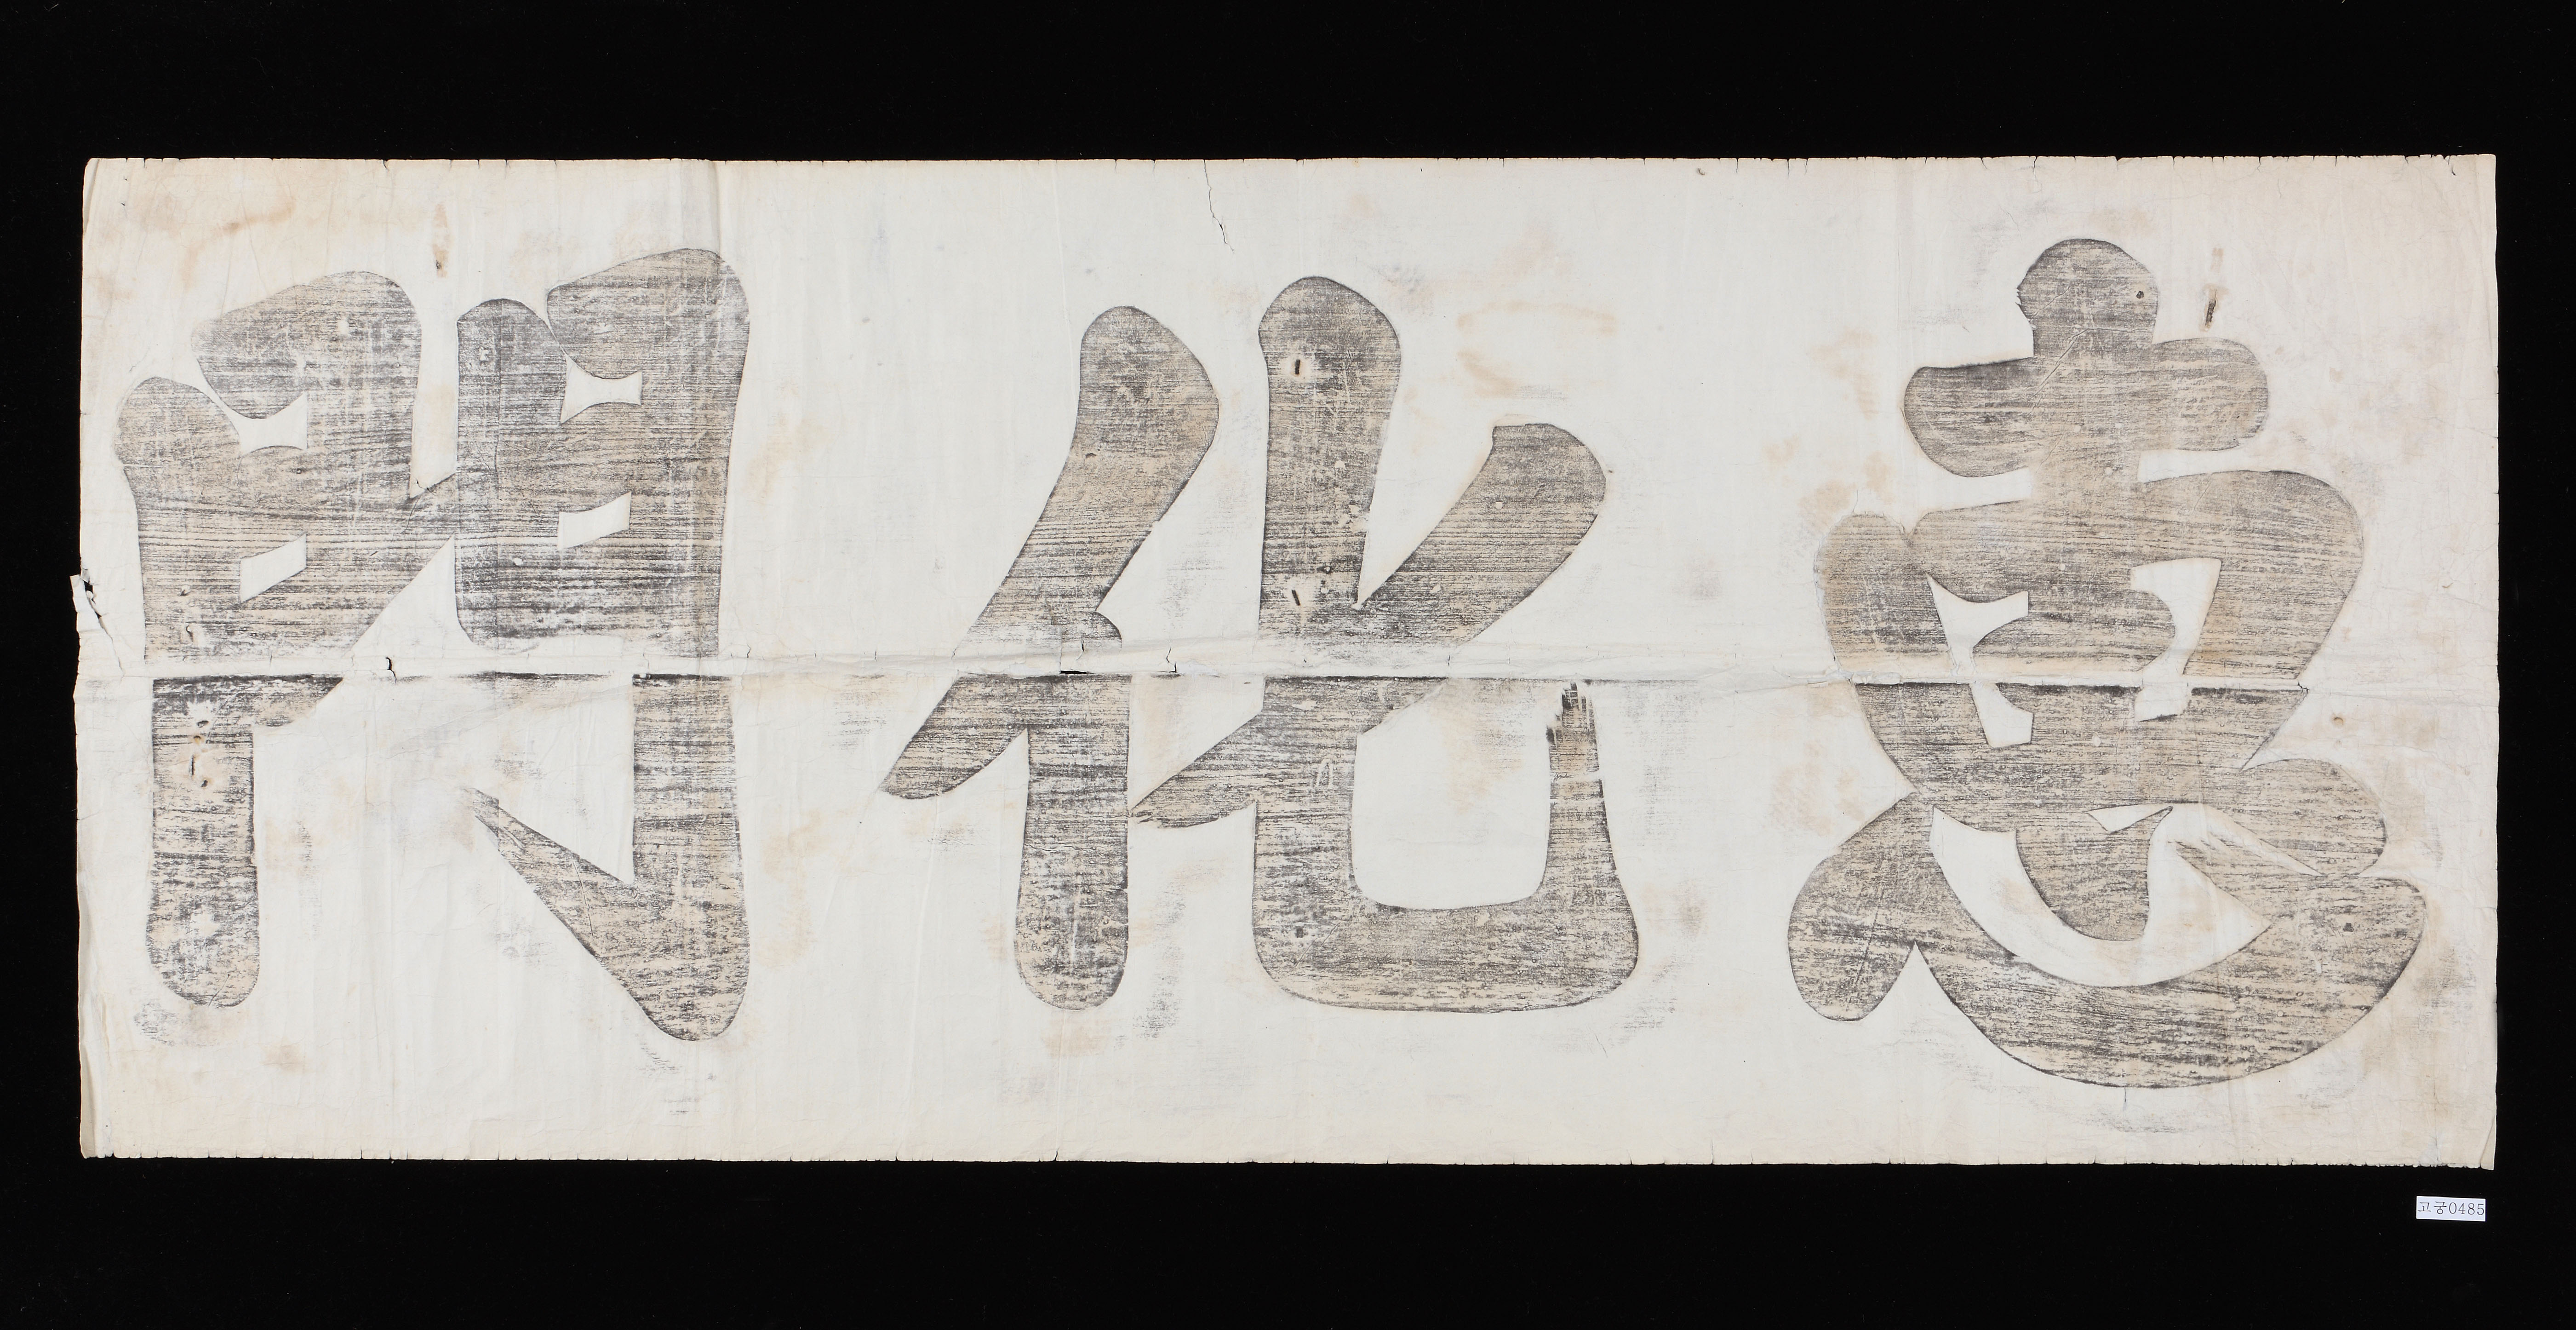 惠化門
고궁0485